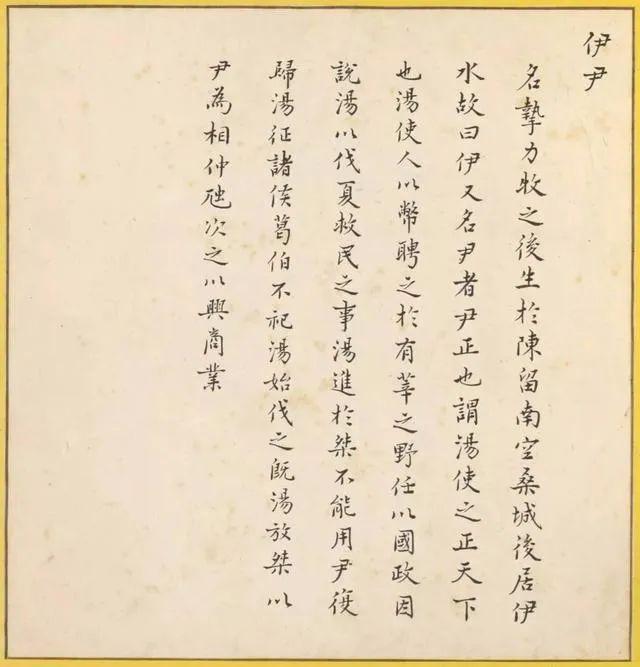 伊尹
名摯力牧之後生於陳留南空桑城後居伊
水故曰伊又名尹者尹正也謂湯使之正天下
也湯使人以幣聘之於有莘之野任以國政因
說湯以伐夏救民之事湯進於桀不能用尹復
歸湯征諸侯葛伯不祀湯始伐之旣湯放桀以
尹為相仲虺次之以興商業